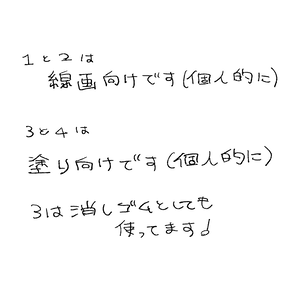 1と2は
線画向けです(個人的に)
3と4は
塗り向けです(個人的に)
3は消しゴムとしても
使ってます♪